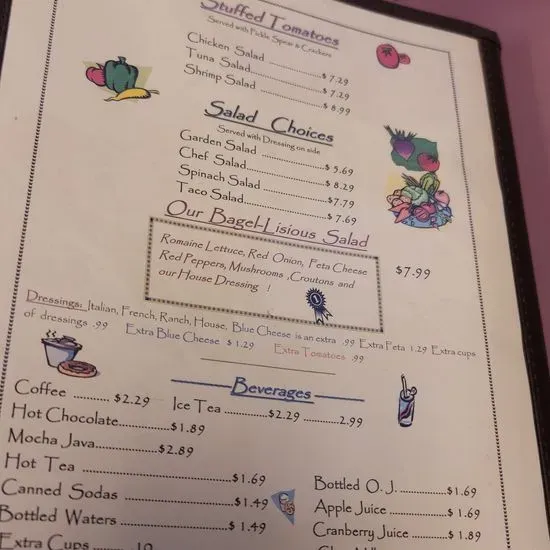 Stuffed Tomatoes
Served with Pickle, Spear & Crackers
Chicken Salad ..................$ 7.29
Tuna Salad.......................$ 7.29
Shrimp Salad ....................$ 8.99
Salad Choices
Served with Dressing on side
Garden Salad ....................$ 5.69
Chef Salad........................$ 8.29
Spinach Salad ....................$7.79
Taco Salad........................$ 7.69
Our Bagel-Lisious Salad
Romaine Lettuce, Red Onion, Feta Cheese
Red Peppers, Mushrooms ,Croutons and
our House Dressing !
$7.99
Dressings: Italian, French, Ranch, House, Blue Cheese is an extra .99 Extra Feta 1.29 Extra cups
of dressings .99 Extra Blue Cheese $ 1.29 Extra Tomatoes .99
Beverages
Coffee .......... $2.29
Ice Tea ............$2.29 ..........2.99
Hot Chocolate............$1.89
Mocha Java...............$2.89
Hot Tea ..............................$1.69
Canned Sodas ......................$1.49
Bottled Waters ......................$ 1.49
Extra Cups ..........10
Bottled O. J. ............$1.69
Apple Juice ..............$ 1.69
Cranberry Juice .........$ 1.89